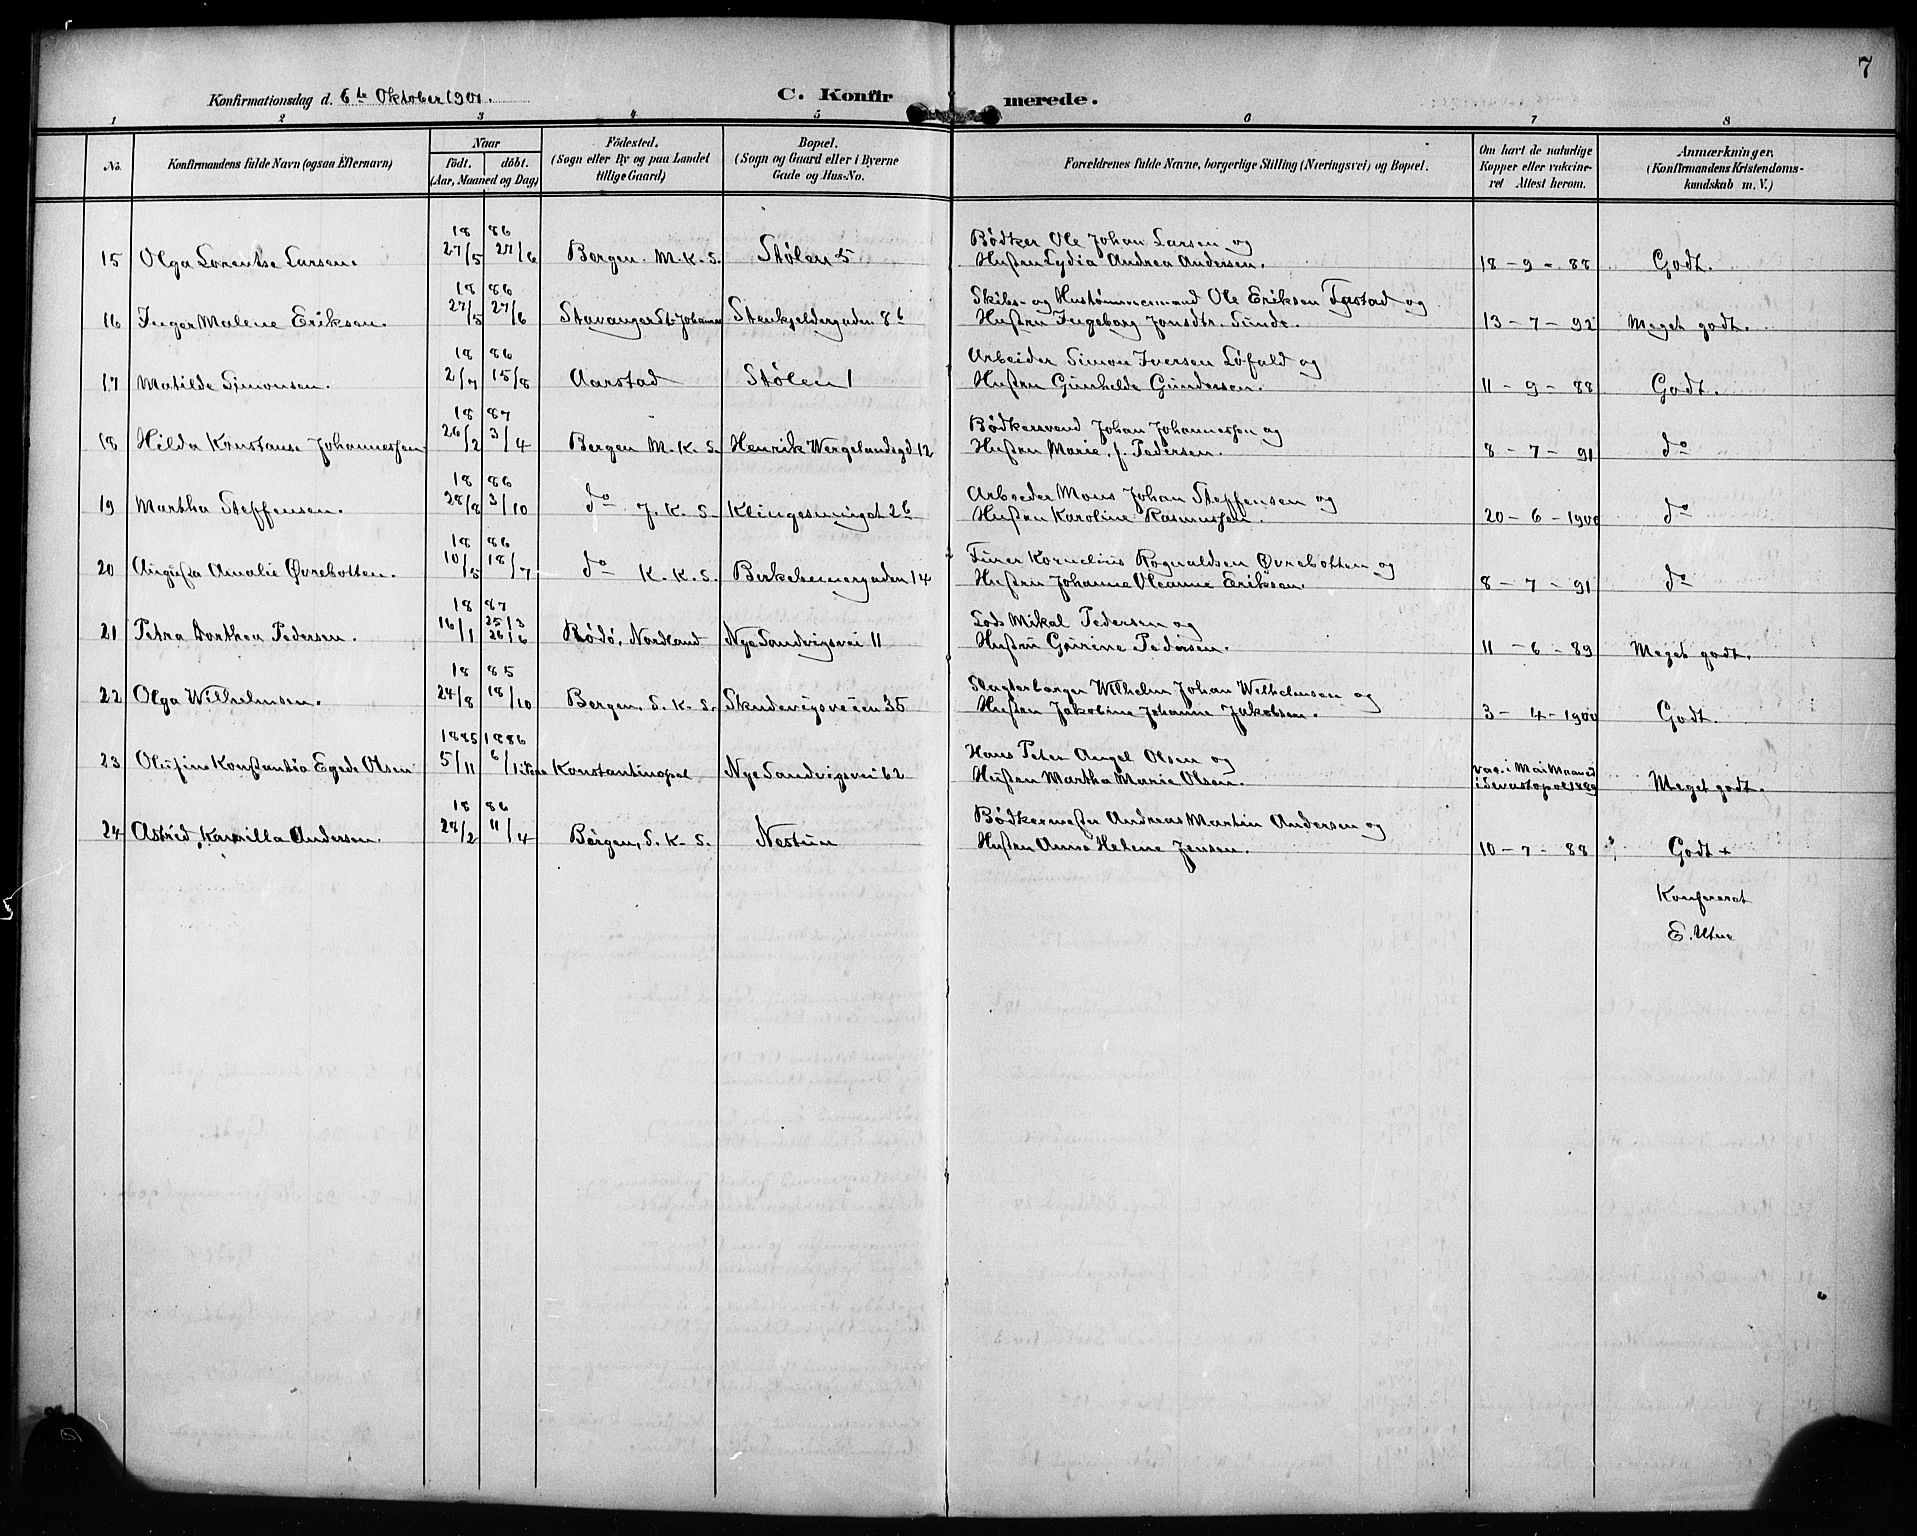 7
Konfirmationsdag d. 6te Oktober 1901. C. Konfirmerede.
1 2 3 4 5 6 7 8
No. Konfirmandens fulde Navn (ogsaa Efternavn) Naar födt. döbt. (Aar, Maaned og Dag) Födested. (Sogn eller By og paa Landet tillige Gaard) Bopæl. (Sogn og Gaard eller i Byerne Gade og Hus-No. Forældrenes fulde Navne, borgerlige Stilling (Næringsvei) og Bopæl. Om havt de naturlige Kopper eller vakcineret Attest herom. Anmærkninger, (Konfirmandens Kristendomskundskab m. V.)
18 86 Bødker Ole Johan Larsen og
15 Olga Lorentse Larsen. 27/5 27/6 Bergen. M. K. S. Stølen 5 Hustru Lydia Andrea Andersen. 18 - 9 - 88 Godt.
18 86 Skibs- og Hustømmermand Ole Eriksen og
16 Inger Malene Eriksen. 27/5 27/6 Stavanger St. Johannes Stenkjeldergaden 8b Hustru Ingeborg Jonsdtr. Sunde. 13 - 7 - 92 Meget godt.
18 86 Arbeider Simon Iversen Løfald og
17 Matilde Simonsen. 2/7 15/8 Aarstad Stølen 1 Hustru Gunhilde Gundersen. 11 - 9 - 88 Godt.
18 87 Bødkersvend Johan Johannessen og
18 Hilda Konstanse Johannessen 26/2 3/4 Bergen M. K. S. Henrik Wergelandsgd 12 Hustru Marie, f. Pedersen. 8 - 7 - 91 do
18 86 Arbeider Mons Johan Steffensen og
19 Martha Steffensen. 28/8 3/10 do J. K. S. Klingesmuget 2b Hustru Karoline Rasmussen. 20 - 6 - 1900 do
18 86 Kornelius Rognaldsen Øvrebotten og
20 Augusta Amalie Øvrebotten. 10/5 18/7 do K. K. S. Birkebeinergaden 14 Hustru Johanne Oleanne Eriksen. 8 - 7 - 91 do
18 87 Lods Mikal Pedersen og
21 Petra Dorthea Pedersen. 16/1 25/3 26/6 Bodø, Nordland Nye Sandvigsvei 11 Hustru Gurine Pedersen. 11 - 6 - 89 Meget godt.
18 85 Slagterborger Wilhelm Johan Wilhelmsen og
22 Olga Wilhelmsen. 24/8 18/10 Bergen, S. K. S. Skudevigsveien 35 Hustru Jakobine Johanne Jakobsen. 3 - 4 - 1900 Godt.
1885 1886 Hans Peter Angel Olsen og
23 Olufine Konstantia Egede Olsen 5/11 6/1 Konstantinopel Nye Sandvigsvei 62 Hustru Martha Marie Olsen. vac. i Mai Maaned i Sevastopol 1889 Meget godt.
18 86 Bødkermester Andreas Martin Andersen og
24 Astrid Kamilla Andersen. 28/2 11/4 Bergen, S. K. S. Nestun Hustru Anna Helene Jensen. 10 - 7 - 88 Godt +
Konfereret
E. Utne